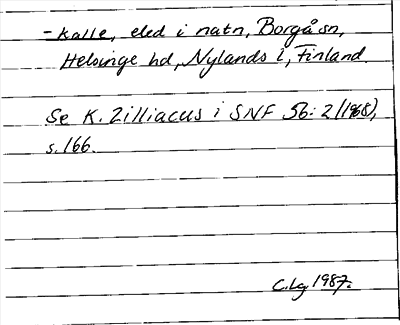 -kalle, eled i natn, Borgå sn,
Helsinge hd, Nylands l, Finland.
Se K. Zilliacus i SNF 56: 2 (1968),
s. 166.
C.Lg 1987.